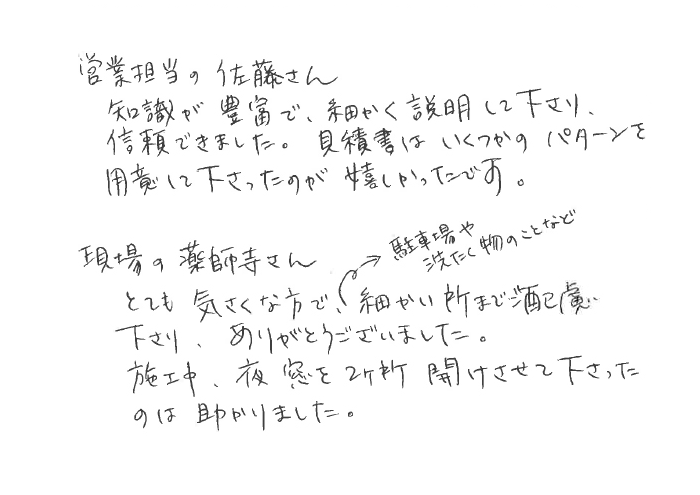 営業担当の 佐藤さん
知識が 豊富で、細かく説明して下さり、
信頼できました。見積書は いくつかの パターンを
用意して下さったのが 嬉しかったです。
現場の 薬師寺さん
駐車場や
洗たく物のことなど
とても 気さくな方で、細かい所までご配慮
下さり、ありがとうございました。
施工中、夜 窓を 2ヶ所 開けさせて下さった
のは 助かりました。